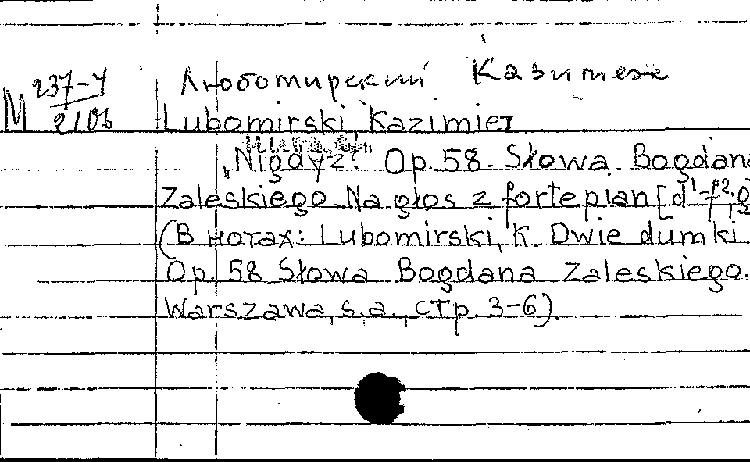 М 237-4/2106
Любомирский Казимеж
Lubomirski Kazimierz
„Nigdyż". Op. 58. Słowa Bogdana
Zaleskiego. Na głos z fortepian [d¹-f²
(В нотах: Lubomirski, K. Dwie dumki.
Op. 58 Słowa Bogdana Zaleskiego.
Warszawa, s.a., стр. 3-6).